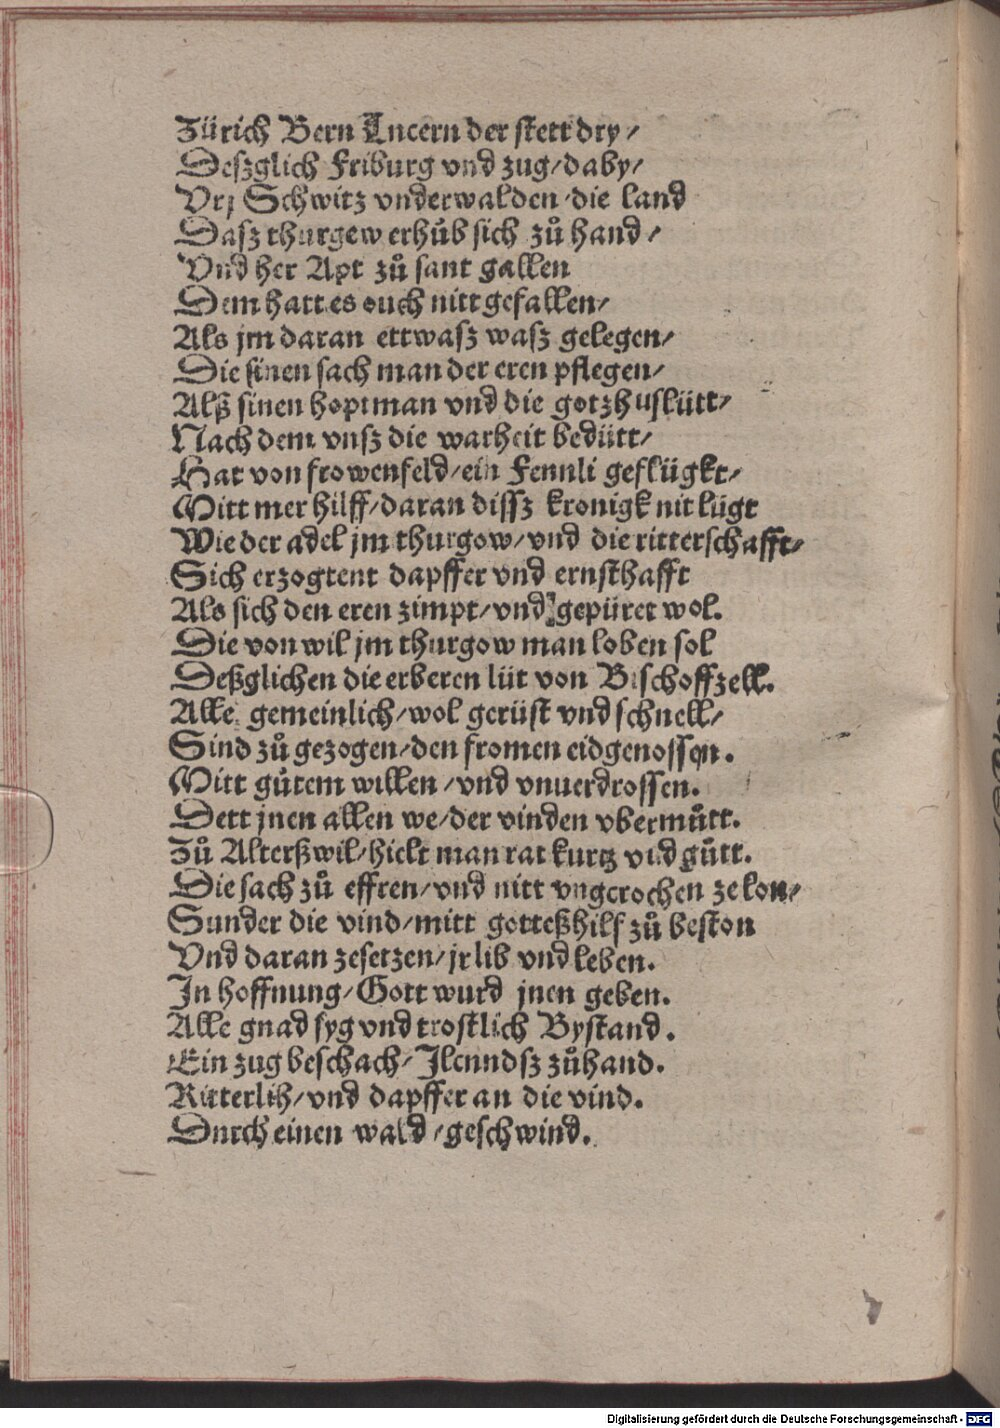 Zürich Bern Lucern der stett dry/
Deßglich Friburg vnd zug/daby/
Vrj Schwitz vnderwalden/die land
Dasz thurgew erhůb sich zů hand/
Vnd her Apt zů sant gallen
Dem hatt es ouch nitt gefallen/
Als jm daran ettwasz wasz gelegen/
Die sinen sach man der eren pflegen/
Alß sinen hoptman vnd die gotzhuslütt/
Nach dem vnsz die warheit bedütt/
Hat von frowenfeld/ein Fennli geflügkt/
Mitt mer hilff/daran dissz kronigk nit lügt
Wie der adel jm thurgow/vnd die ritterschafft/
Sich erzogtent dapffer vnd ernsthafft
Als sich den eren zimpt/vnd gepüret wol.
Die von wil jm thurgow man loben sol
Deßglichen die erberen lüt von Bischoffzell.
Alle gemeinlich/wol gerüst vnd schnell/
Sind zů gezogen/den fromen eidgenossen.
Mitt gůtem willen/vnd vnuerdrossen.
Dett jnen allen we/der vinden vbermůtt.
Zů Alterßwil/hielt man rat kurtz vnd gůtt.
Die sach zů effren/vnd nitt vngerochen ze lon/
Sunder die vind/mitt gotteßhilf zů beston
Vnd daran zesetzen/jr lib vnd leben.
In hoffnung/Gott wurd jnen geben.
Alle gnad syg vnd trostlich Bystand.
Ein zug beschach/Ilenndsz zůhand.
Ritterlih/vnd dapffer an die vind.
Durch einen wald/geschwind.
Digitalisierung gefördert durch die Deutsche Forschungsgemeinschaft - DFG